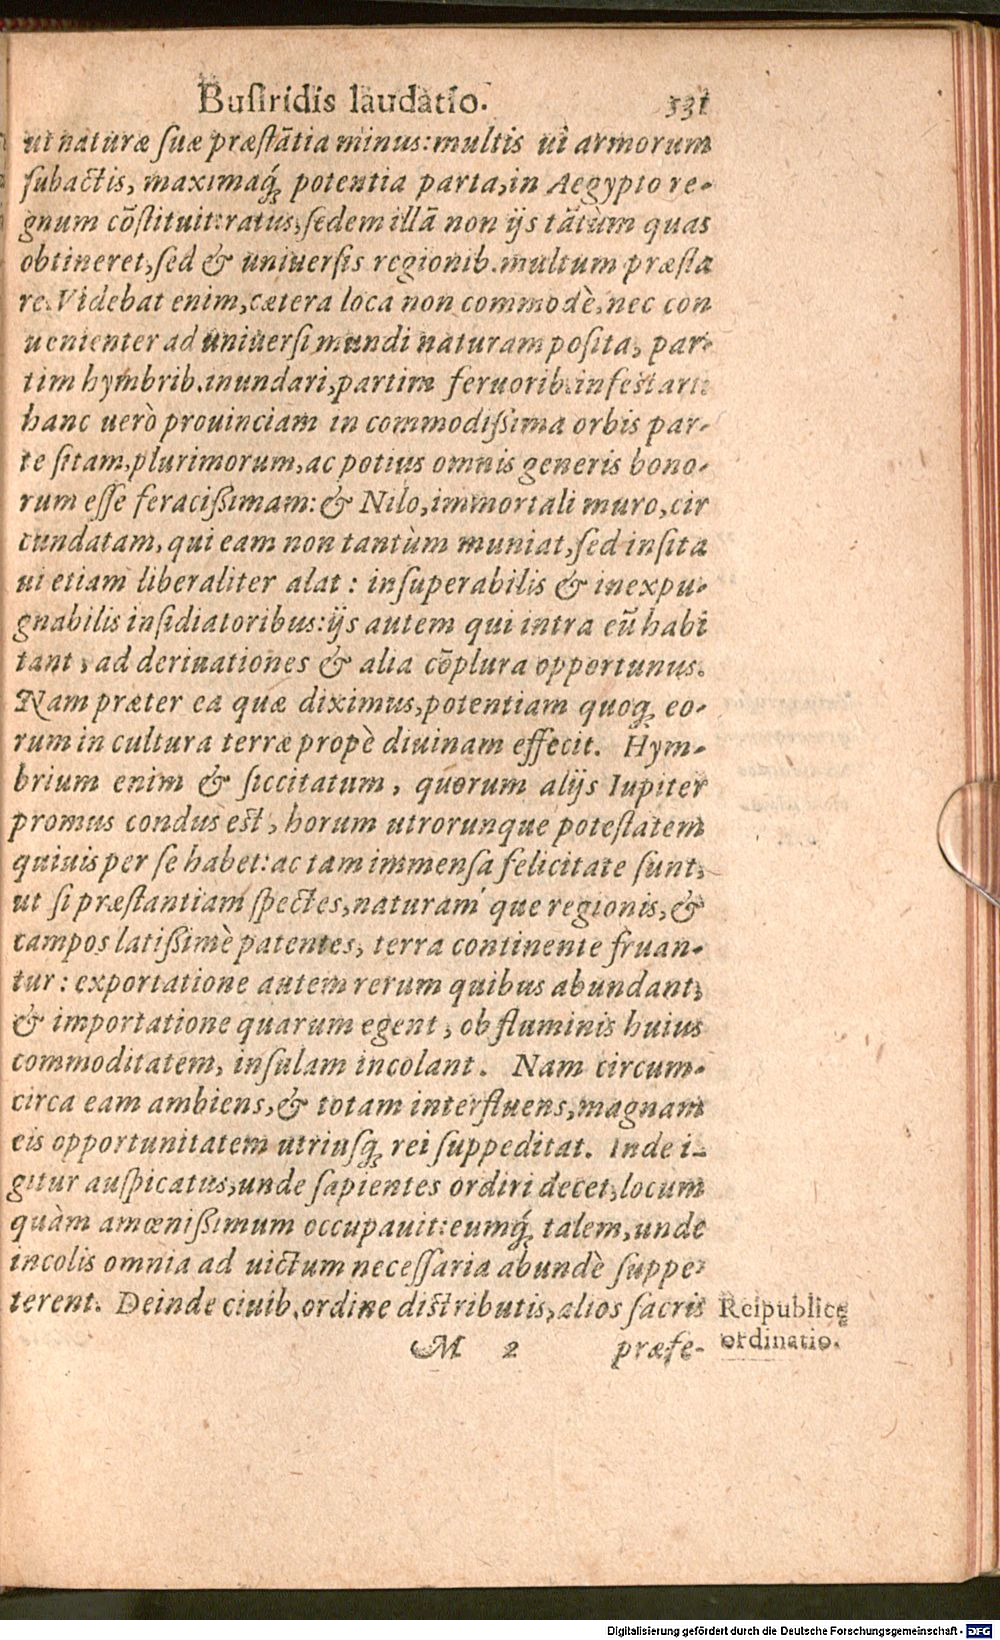 Buſiridis laudatio. 531
ut naturæ ſuæ præſtātia minus: multis ui armorum
ſubactis, maximaq́; potentia parta, in Aegypto re-
gnum cōſtituit: ratus, ſedem illā non ijs tātum quas
obtineret, ſed & uniuerſis regionib. multum præſta
re. Videbat enim, cætera loca non commodè, nec con
uenienter ad uniuerſi mundi naturam poſita, par-
tim hymbrib. inundari, partim feruorib. infeſtari:
hanc uerò prouinciam in commodiſſima orbis par-
te ſitam, plurimorum, ac potius omnis generis bono-
rum eſſe feraciſsimam: & Nilo, immortali muro, cir
cundatam, qui eam non tantùm muniat, ſed inſita
ui etiam liberaliter alat: inſuperabilis & inexpu-
gnabilis inſidiatoribus: ijs autem qui intra eū habi
tant, ad deriuationes & alia cōplura opportunus.
Nam præter ea quæ diximus, potentiam quoq; eo-
rum in cultura terræ propè diuinam effecit. Hym-
brium enim & ſiccitatum, quorum alijs Iupiter
promus condus eſt, horum utrorunque poteſtatem
quiuis per ſe habet: ac tam immenſa felicitate ſunt,
ut ſi præſtantiam ſpectes, naturaḿ que regionis, &
campos latiſsimè patentes, terra continente fruan-
tur: exportatione autem rerum quibus abundant,
& importatione quarum egent, ob fluminis huius
commoditatem, inſulam incolant. Nam circum-
circa eam ambiens, & totam interfluens, magnam
eis opportunitatem utriuſq; rei ſuppeditat. Inde i-
gitur auſpicatus, unde ſapientes ordiri decet, locum
quàm amœniſsimum occupauit: eumq́; talem, unde
incolis omnia ad uictum neceſſaria abundè ſuppe-
terent. Deinde ciuib. ordine diſtributis, alios ſacris
Reipublicę
ordinatio.
M 2 præfe-
Digitalisierung gefördert durch die Deutsche Forschungsgemeinschaft - DFG